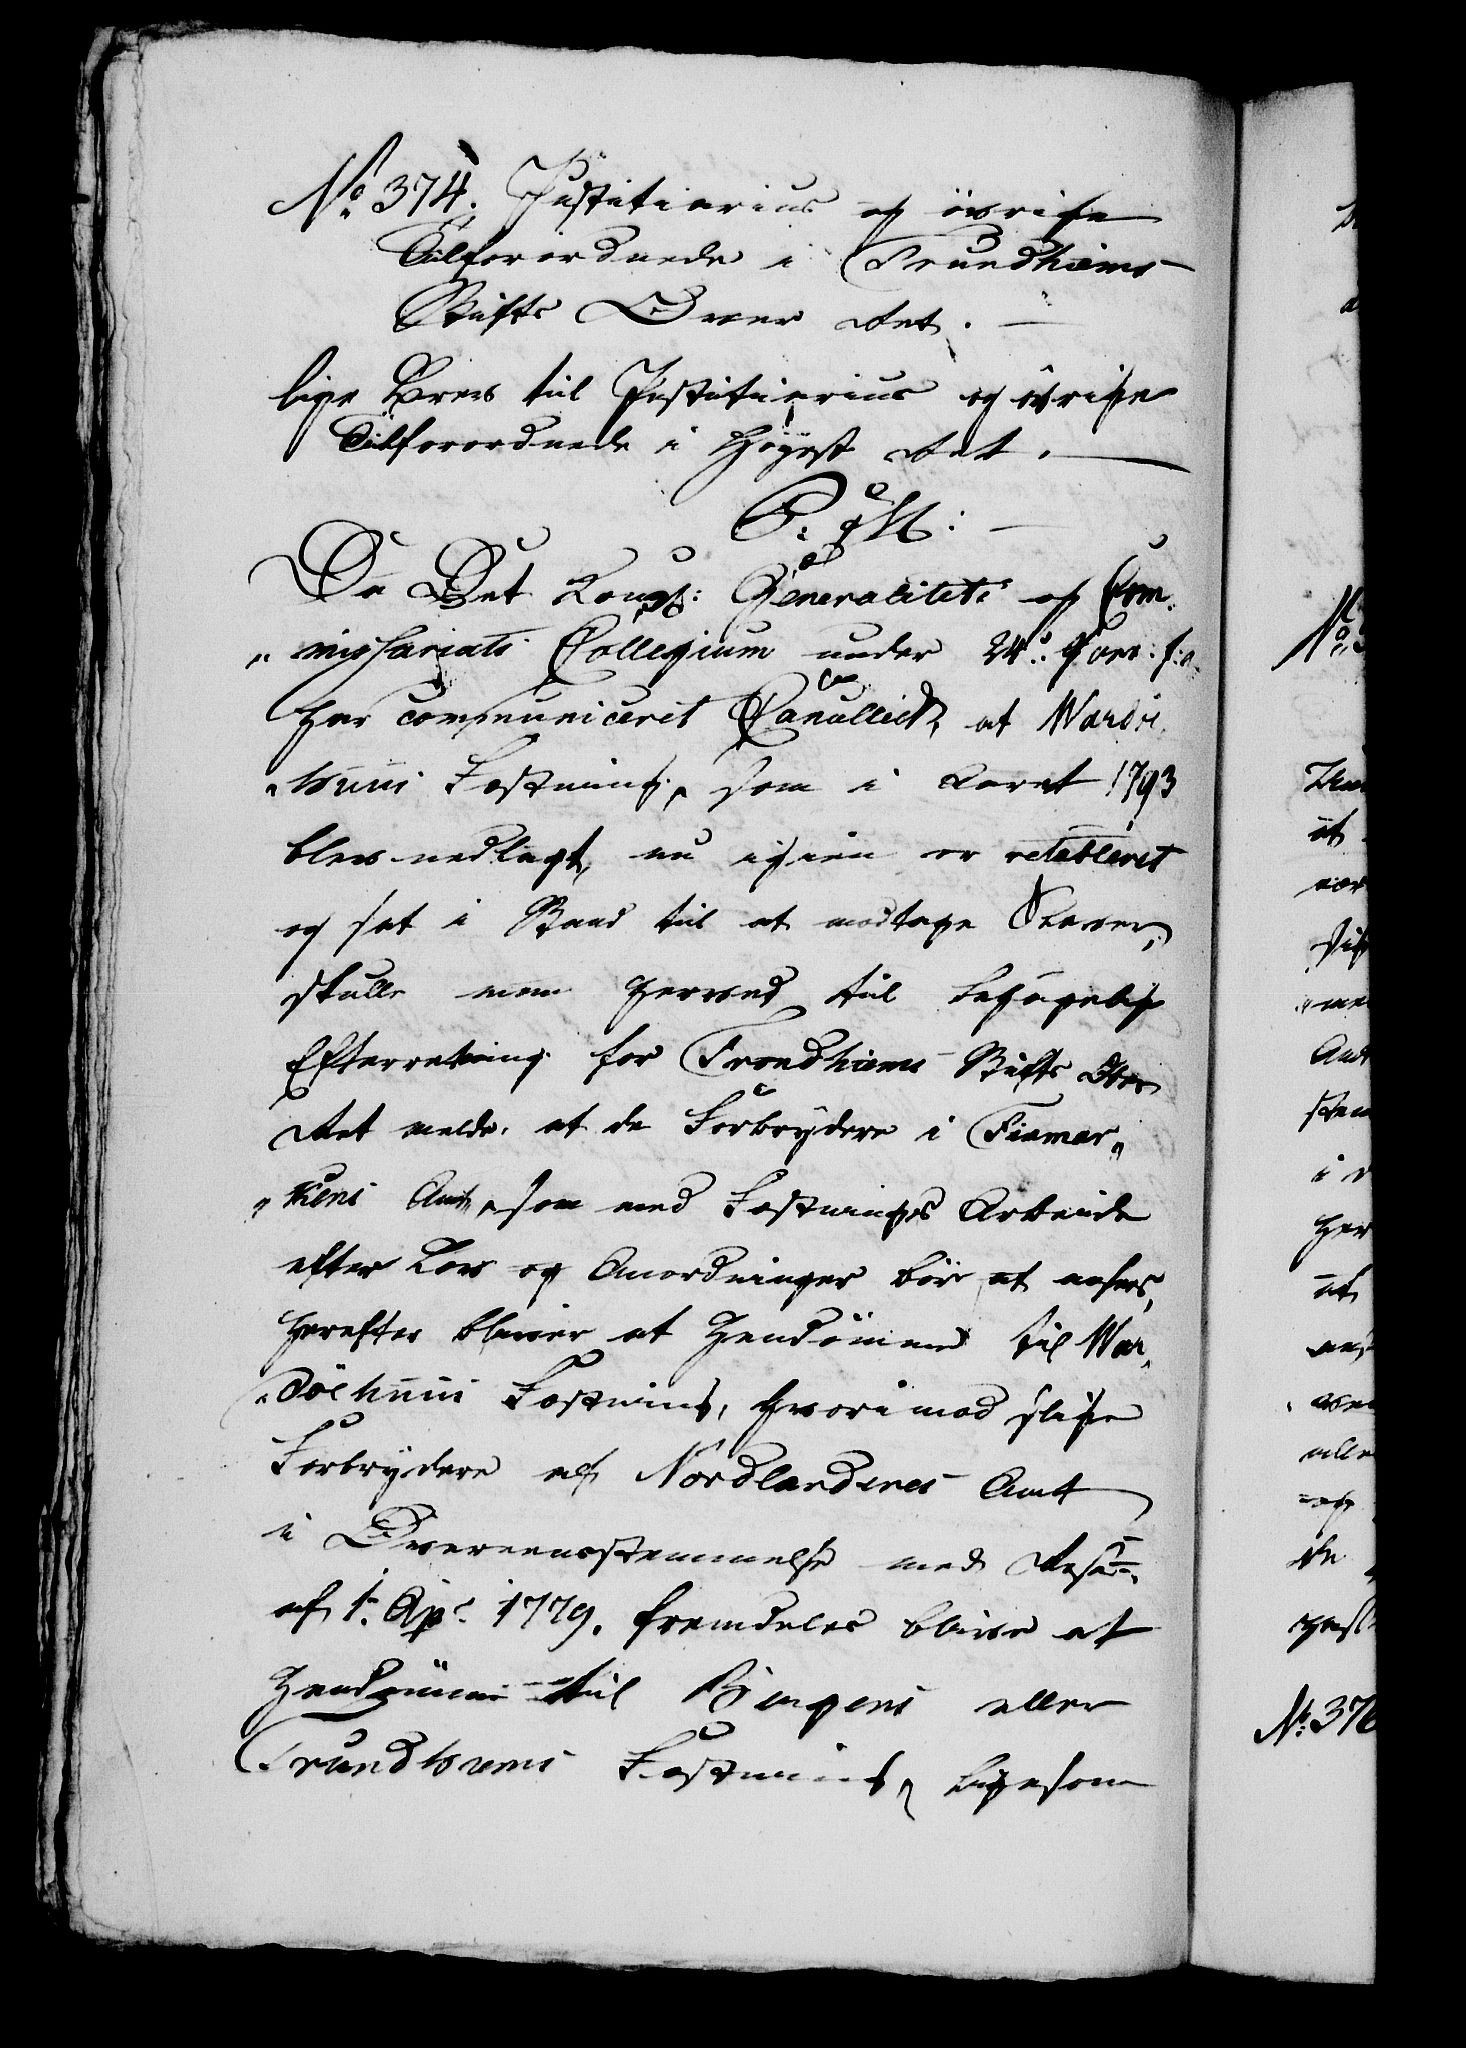 No 374. Justitiarius og øvrige
Tilforordnede i Trundhiems
Stifts Over Ret.
lige Brev til Justitiarius og øvrige
Tilforordnede i Høyest Ret.
P. M:
Da Det Kongl: Generalitets og Com„
„missariats Collegium under 24de
har communiceret Cancelliet, at Wardø„
„huus Fæstning, som i Aaret 1793
blev nedlagt, nu igien er retableret
og sat i Stand til at modtage Slaver,
skulle man herved til behagelig
Efterretning for Trondhiems Stifts Over
Ret melde, at de Forbrydere i Finmar„
„kens Amt, som med Fæstnings Arbeide
efter Lov og Anordninger bør at ansees,
herefter bliver at hendømme til War„
„döehuus Fæstning, hvorimod slige
Forbrydere af Nordlandenes Amt
i Overeensstemmelse med Resol:
af 1. Apr. 1779. fremdeles blive at
hendømme til Bergens eller
Trundhiems Fæstning, ligesom
No 376